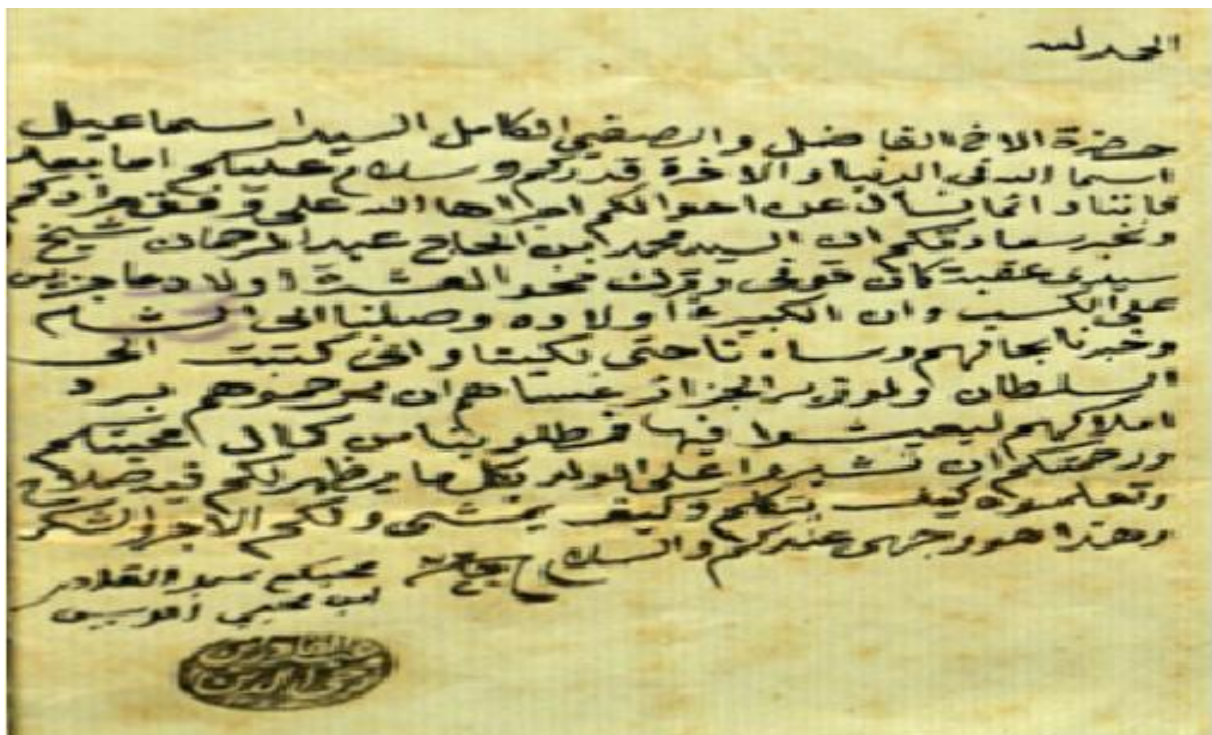 الحمد لله
حضرة الاخ الفاضل والصفي الكامل السيد اسماعيل
اسما الله في الدنيا والاخرة قدركم وسلام عليكم اما بعد
فاننا دائما نسأل عن احوالكم اجراها الله على وفق مرادكم
ونخبر سعادتكم ان السيد محمد ابن الحاج عبد الرحمان شيخ
سيدي عقبة كان توفى وترك نحو العشرة اولاد عاجزين
على الكسب وان الكبير اولاده وصلنا الى الشام
وخبرنا بحالهم وساءنا حتى بكينا واني كتبت الى
السلطان ولوزير الجزائر عساهم ان يرحموهم برد
املاكهم ليعيشوا فيها فمطلوبنا من كمال محبتكم
ورحمتكم ان تشيروا على الولد بكل ما يظهر لكم فيه صلاح
وتعلموه كيف يتكلم وكيف يمشي ولكم الاجر والشكر
وهذا هو رجهى عندكم والسلام
محبكم عبد القادر
ابن محيي الدين